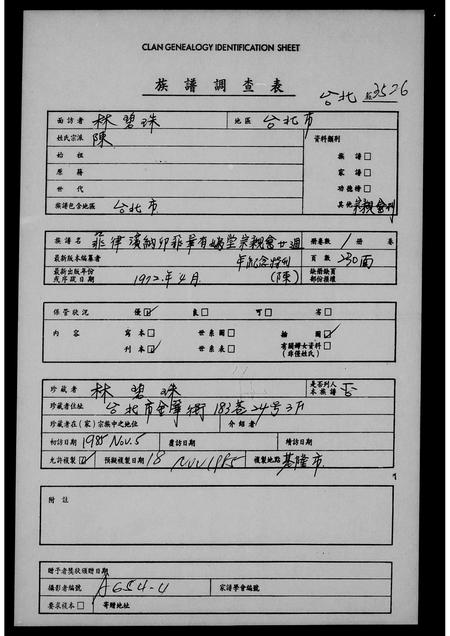 CLAN GENEALOGY IDENTIFICATION SHEET
族譜調查表
台北 3526
面訪者 林碧珠 地區 台北市
姓氏宗派 陳 資料類別
始祖 族譜□
原籍 家譜□
世代 功德榜□
族譜包含地區 台北市 其他 宗親會刊
族譜名 菲律濱納卯菲華有媯堂宗親會廿週 冊卷數 1 冊 卷
年紀念特刊
最新版本編纂者 (陳) 頁數 230面
最新出版年份 1972年4月 缺冊缺頁
或序跋日期 部份描繼
保管狀況 優☑ 良□ 可□ 劣□
內容 寫本□ 世系圖□ 插圖☑
刊本☑ 世系表□ 有關婦女資料□
(非僅姓氏)
珍藏者 林碧珠 是否列入 否
本族譜
珍藏者住址 台北市金華街183巷24号3F
珍藏者在(家)宗族中之地位 介紹者
初訪日期 1985 Nov.5 覆訪日期 續訪日期
允許複製☑ 預擬複製日期 18 Nov 1985 複製地點 基隆市
附註
贈予者獎狀頒贈日期
攝影者編號 A654-4 家譜學會編號
要求複本□ 寄贈地址